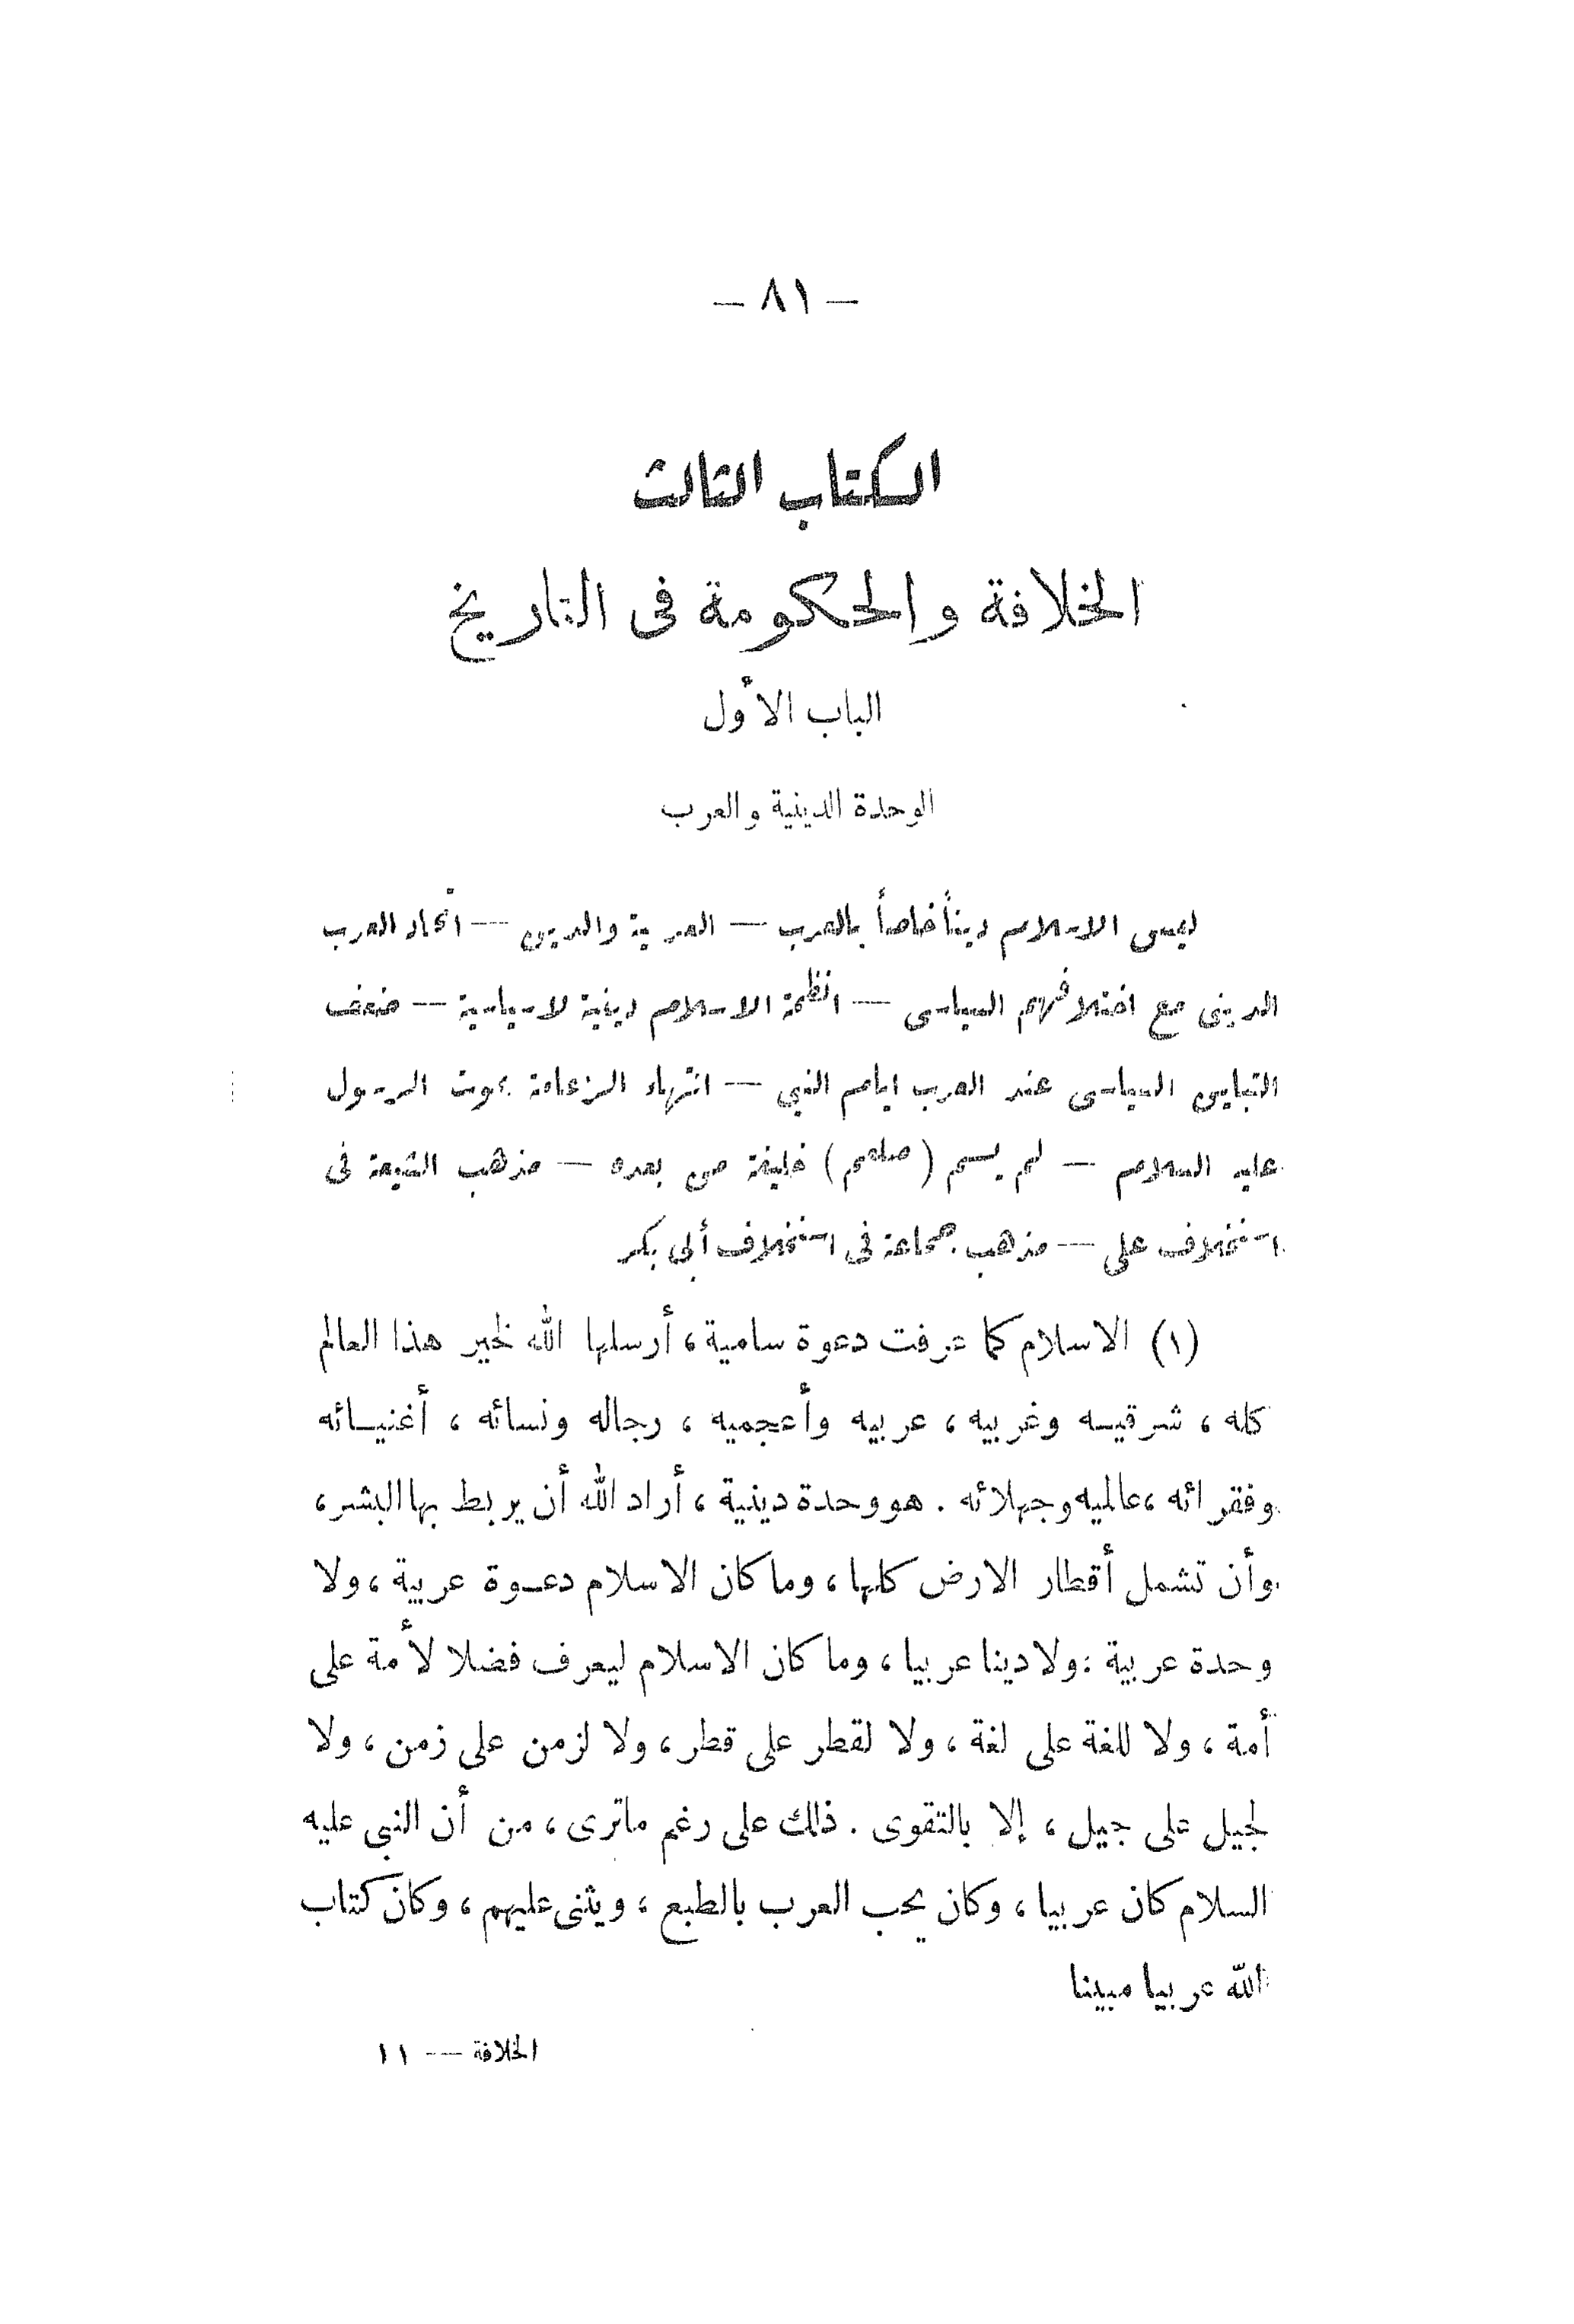 — ٨١ —
الكتاب الثالث
الخلافة والحكومة فى التاريخ
الباب الأول
الوحدة الدينية والعرب
ليس الاسلام ديناً خاصاً بالعرب — العربية والدين — اتحاد العرب
الدينى مع اختلافهم السياسى — انظمة الاسلام دينية لا سياسية — ضعف
التباين السياسى عند العرب ايام النبي — انتهاء الزعامة بموت الرسول
عليه السلام — لم يسم (صلعم) خليفة من بعده — مذهب الشيعة فى
استخلاف على — مذهب جماعة فى استخلاف أبى بكر
(١) الاسلام كما عرفت دعوة سامية، أرسلها الله لخير هذا العالم
كله، شرقيه وغربيه، عربيه وأعجميه، رجاله ونسائه، أغنيائه
وفقرائه، عالميه وجهلائه. هو وحدة دينية، أراد الله أن يربط بها البشر،
وأن تشمل أقطار الارض كلها، وما كان الاسلام دعوة عربية، ولا
وحدة عربية: ولا دينا عربيا، وما كان الاسلام ليعرف فضلا لأمة على
أمة، ولا للغة على لغة، ولا لقطر على قطر، ولا لزمن على زمن، ولا
لجيل على جيل، إلا بالتقوى. ذلك على رغم ماترى، من أن النبي عليه
السلام كان عربيا، وكان يحب العرب بالطبع، ويثنى عليهم، وكان كتاب
الله عربيا مبينا
الخلافة — ١١